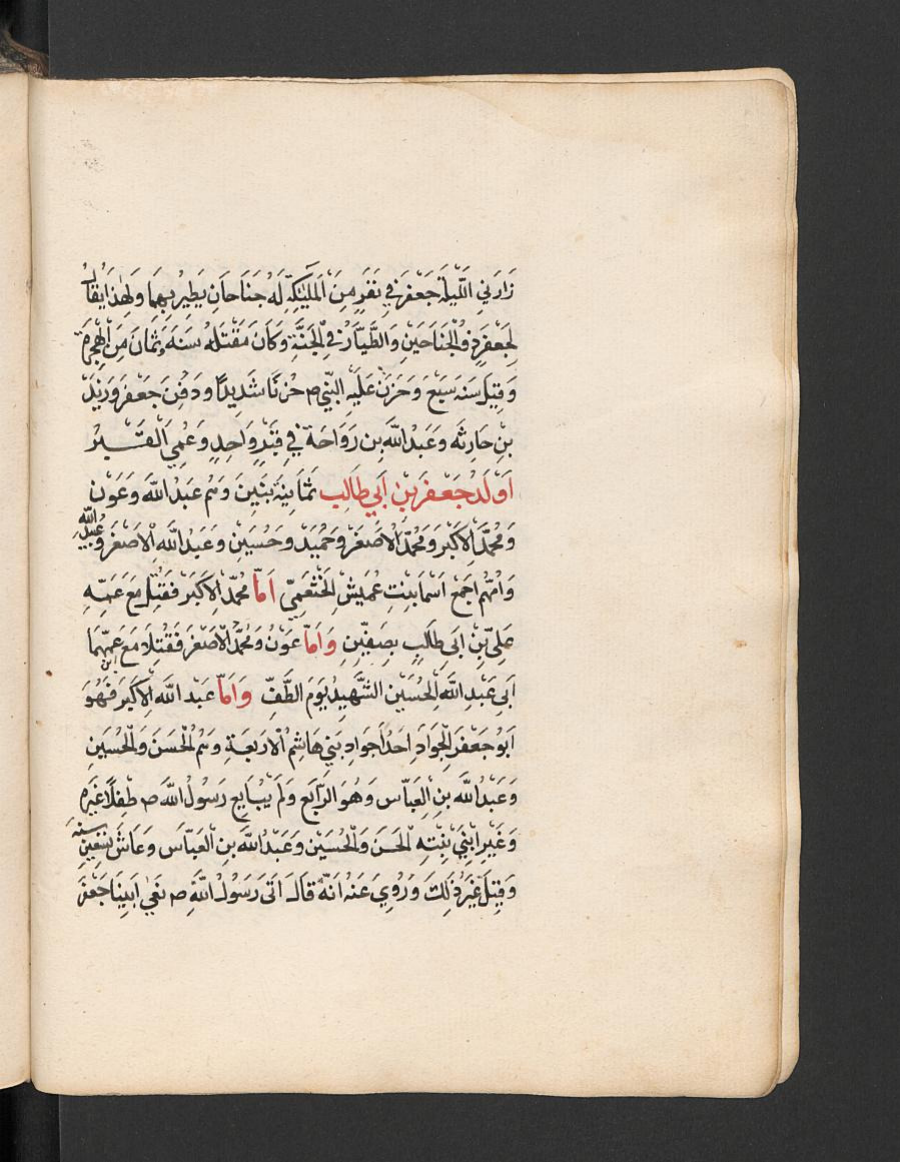 زَارَنِي اللَّيلَةَ جَعْفَرَ فِي نَفَرٍ مِنَ المَلٰئِكَةِ لَهُ جَنَاحَانِ يَطِيرُ بِهِمَا وَلِهٰذَا يُقَالُ
لِجَعْفَرٍ ذُو الْجَنَاحَيْنِ وَالطَّيَّارُ فِي الْجَنَّةِ وَكَانَ مَقْتَلهُ سَنَةَ ثَمَانَ مِنَ الْهِجْرَةِ
وَقِيلَ سَنَه سَبْعَ وَحَزَنَ عَلَيْهِ النَّبِيّ ص حُزنًا شَدِيدًا وَدُفِنَ جَعْفَرَ وَزَيْدَ
بنِ حَارِثَه وَعَبْدُ اللَّه بِن رَوَاحَة فِي قَبْرٍ وَاحِدٍ وَعُمِيَ القَبْرُ
اَوْلَادُ جَعْفَر بِنْ اَبي طَالِب ثَمَانِيَةَ بَنِينَ وَهُم عَبْدُ اللّهَ وَعَوْن
وَمُحَمَّدَ الاَكْبَر وَمُحَمَّدَ الاَصْغَر وَحُمَيْد وَحُسَيْن وَعَبْدُ اللَّه الاَصْغَر وَعُبَيْدُ اللّه
وَاُمُّهُم اَجْمَعْ اَسْمَا بِنْتِ عُمَيْشْ الْخَثْعَمِيّ اَمَّا مُحَمَّدَ الاَكْبَرَ فَقُتِلَ مَعَ عَمِّهِ
عَلِيّ بِنْ اَبَى طَالِبٍ بِصِفِّينِ وَاَمَّا عَوْنُ وَمُحَمَّدُ الاَصْغَرَ فَقُتِلَا مَعَ ابن عَمِّهِمَا
اَبِي عَبْدِ اللَّهِ الْحُسَيْنِ الشَّهِيدْ يَوْمَ الطَّفِّ وَاَمَّا عَبْدُ اللَّه الاَكْبَر فَهُوَ
اَبُو جَعْفَرَ الْجَوَادِ اَحَدُ اَجْوَادِ بَنِي هَاشِمُ الاَرْبَعَةِ وَهُم الْحَسَنَ وَالْحُسَيْنِ
وَعَبْدُ اللَّه بِنِ الْعَبَّاس وَهُوَ الرَّابِعْ وَلَمْ يُبَايِع رَسُولُ اللَّه ص طِفْلًا غَيْرهِ
وَغَيْرِ ابْنَيْ بِنْتِهِ الْحَسَن وَالْحُسَيْن وَعَبْدُ اللَّه بِنِ الْعَبَّاسِ وَعَاشَ تِسْعِينِ سنة
وَقِيلَ غَيْرَ ذٰلِكَ وَرُوِيَ عَنْهُ اَنَّهُ قَالَ اَتَى رَسُولُ اللَّهِ ص نَعْيُ اَبِينَا جَعْفَرَ